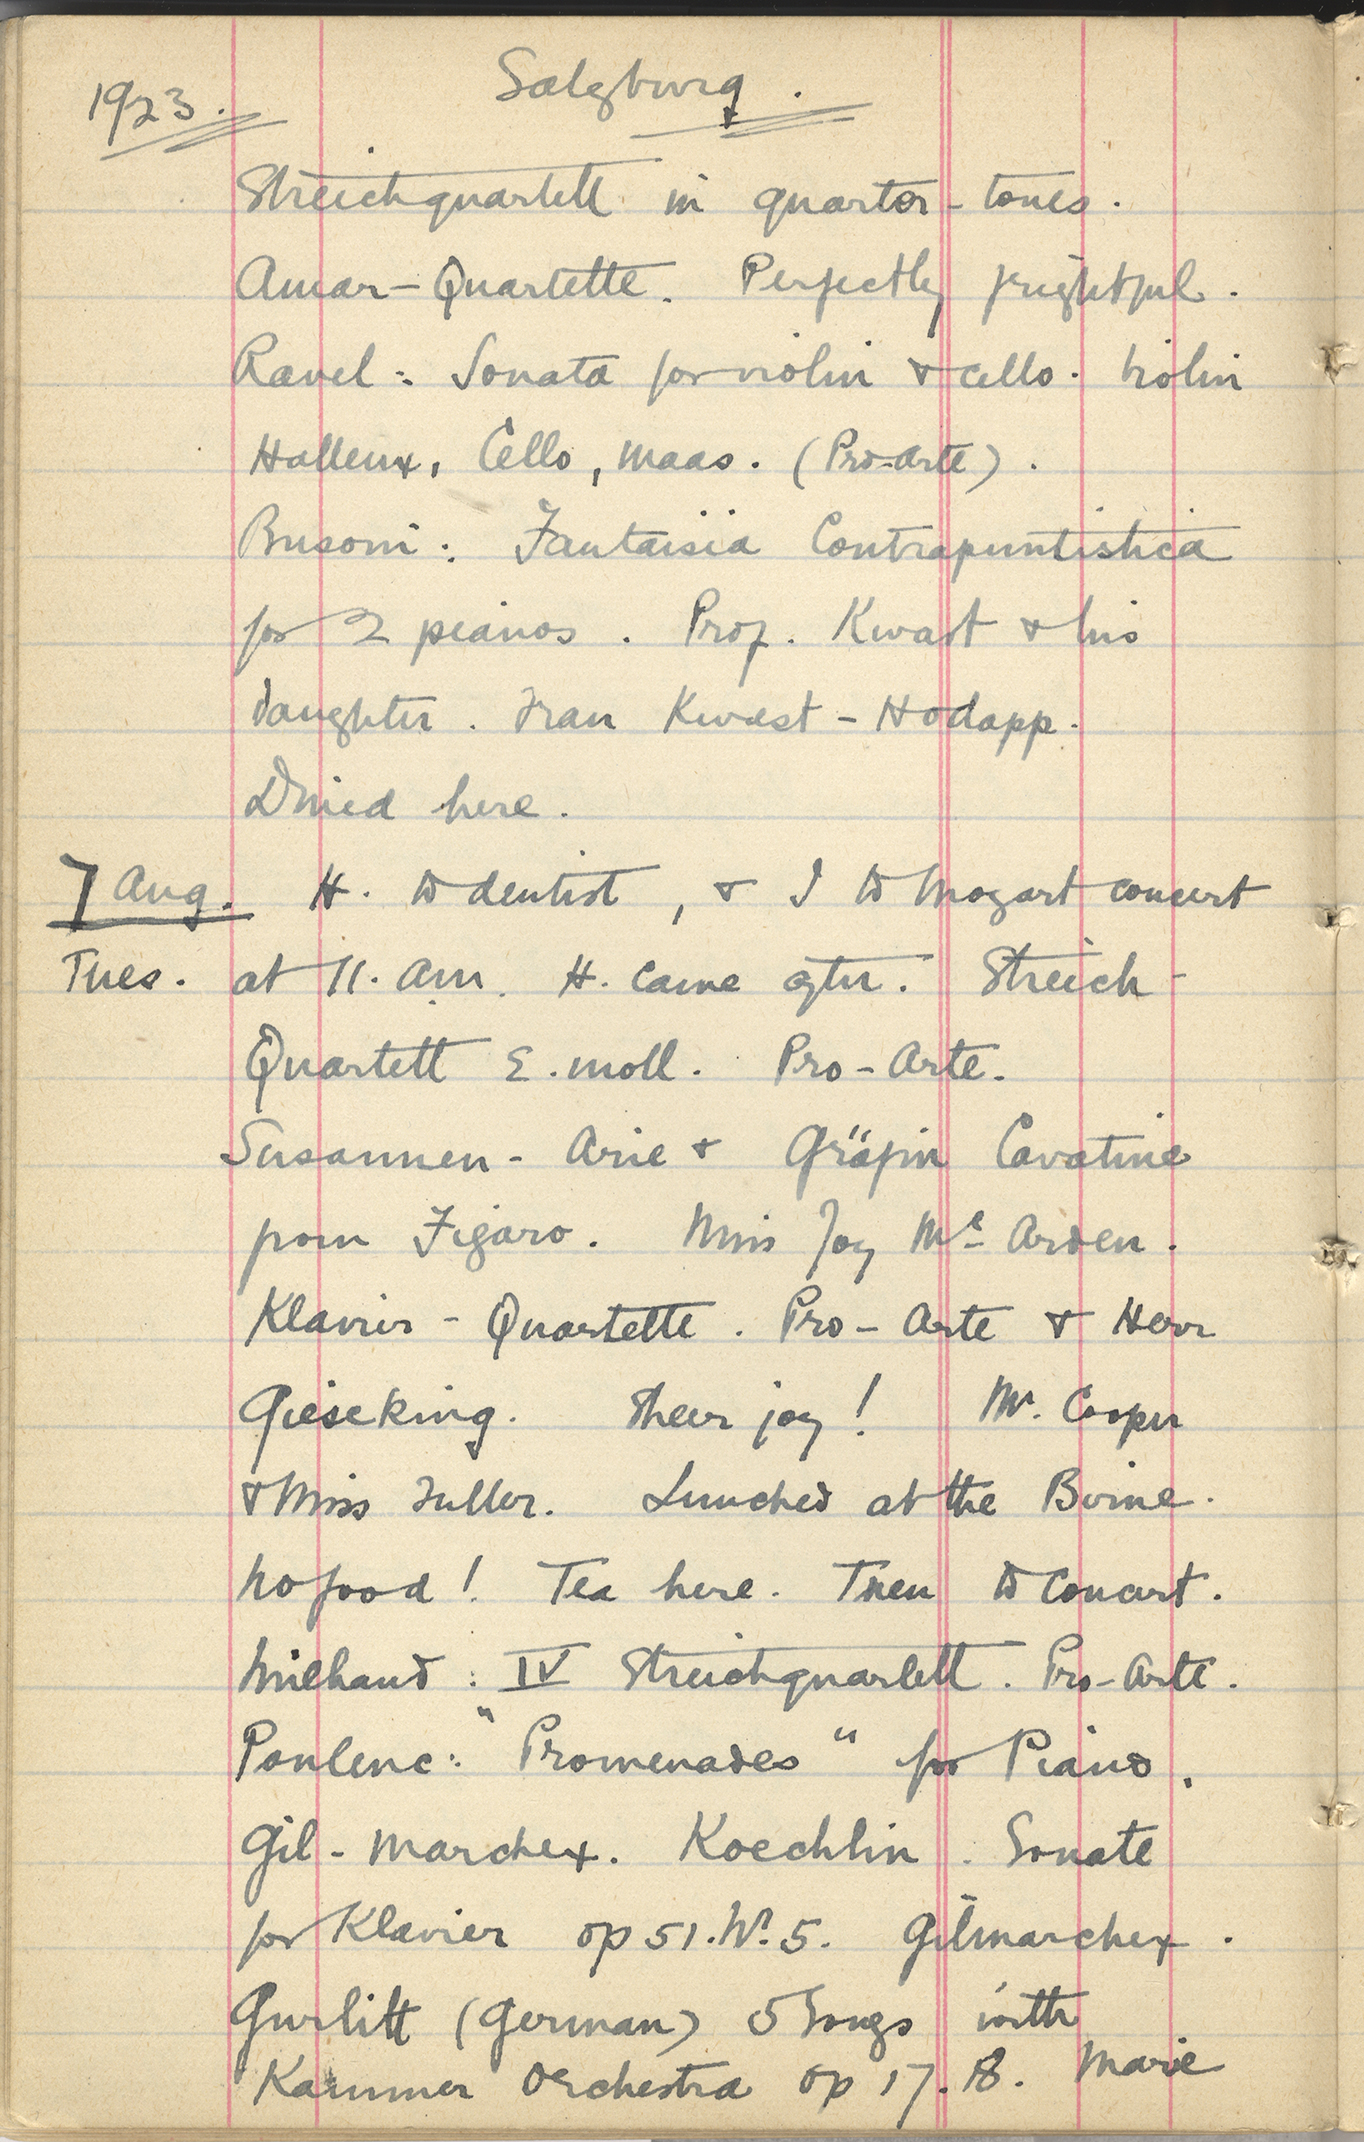 1923.
Salzburg.
Streichquartett in quarter-tones.
Amar-Quartette. Perfectly frightful.
Ravel: Sonata for violin & cello. Violin
Halleux, Cello, Maas. (Pro-Arte).
Busoni: Fantaisia Contrapuntistica
for 2 pianos. Prof. Kwast & his
daughter. Frau Kwast-Hodapp.
Dined here.
7 Aug. H. to dentist, & I to Mozart concert
Tues. at 11. am. H. came after. Streich-
Quartett E.moll. Pro-Arte.
Susannen-Arie & Gräfin Cavatine
from Figaro. Miss Joy Mc Arden.
Klavier-Quartette. Pro-Arte & Herr
Gieseking. Sheer joy! Mr. Cooper
& Miss Fuller. Lunched at the
No food! Tea here. Then to concert.
Milhaud: IV Streichquartett. Pro-Arte.
Poulenc: "Promenades" for Piano.
Gil-Marchex. Koechlin. Sonate
for Klavier op 51. No. 5. Gilmarchex.
Gurlitt (German) 5 Songs with
Kammer Orchestra op 17. Marie